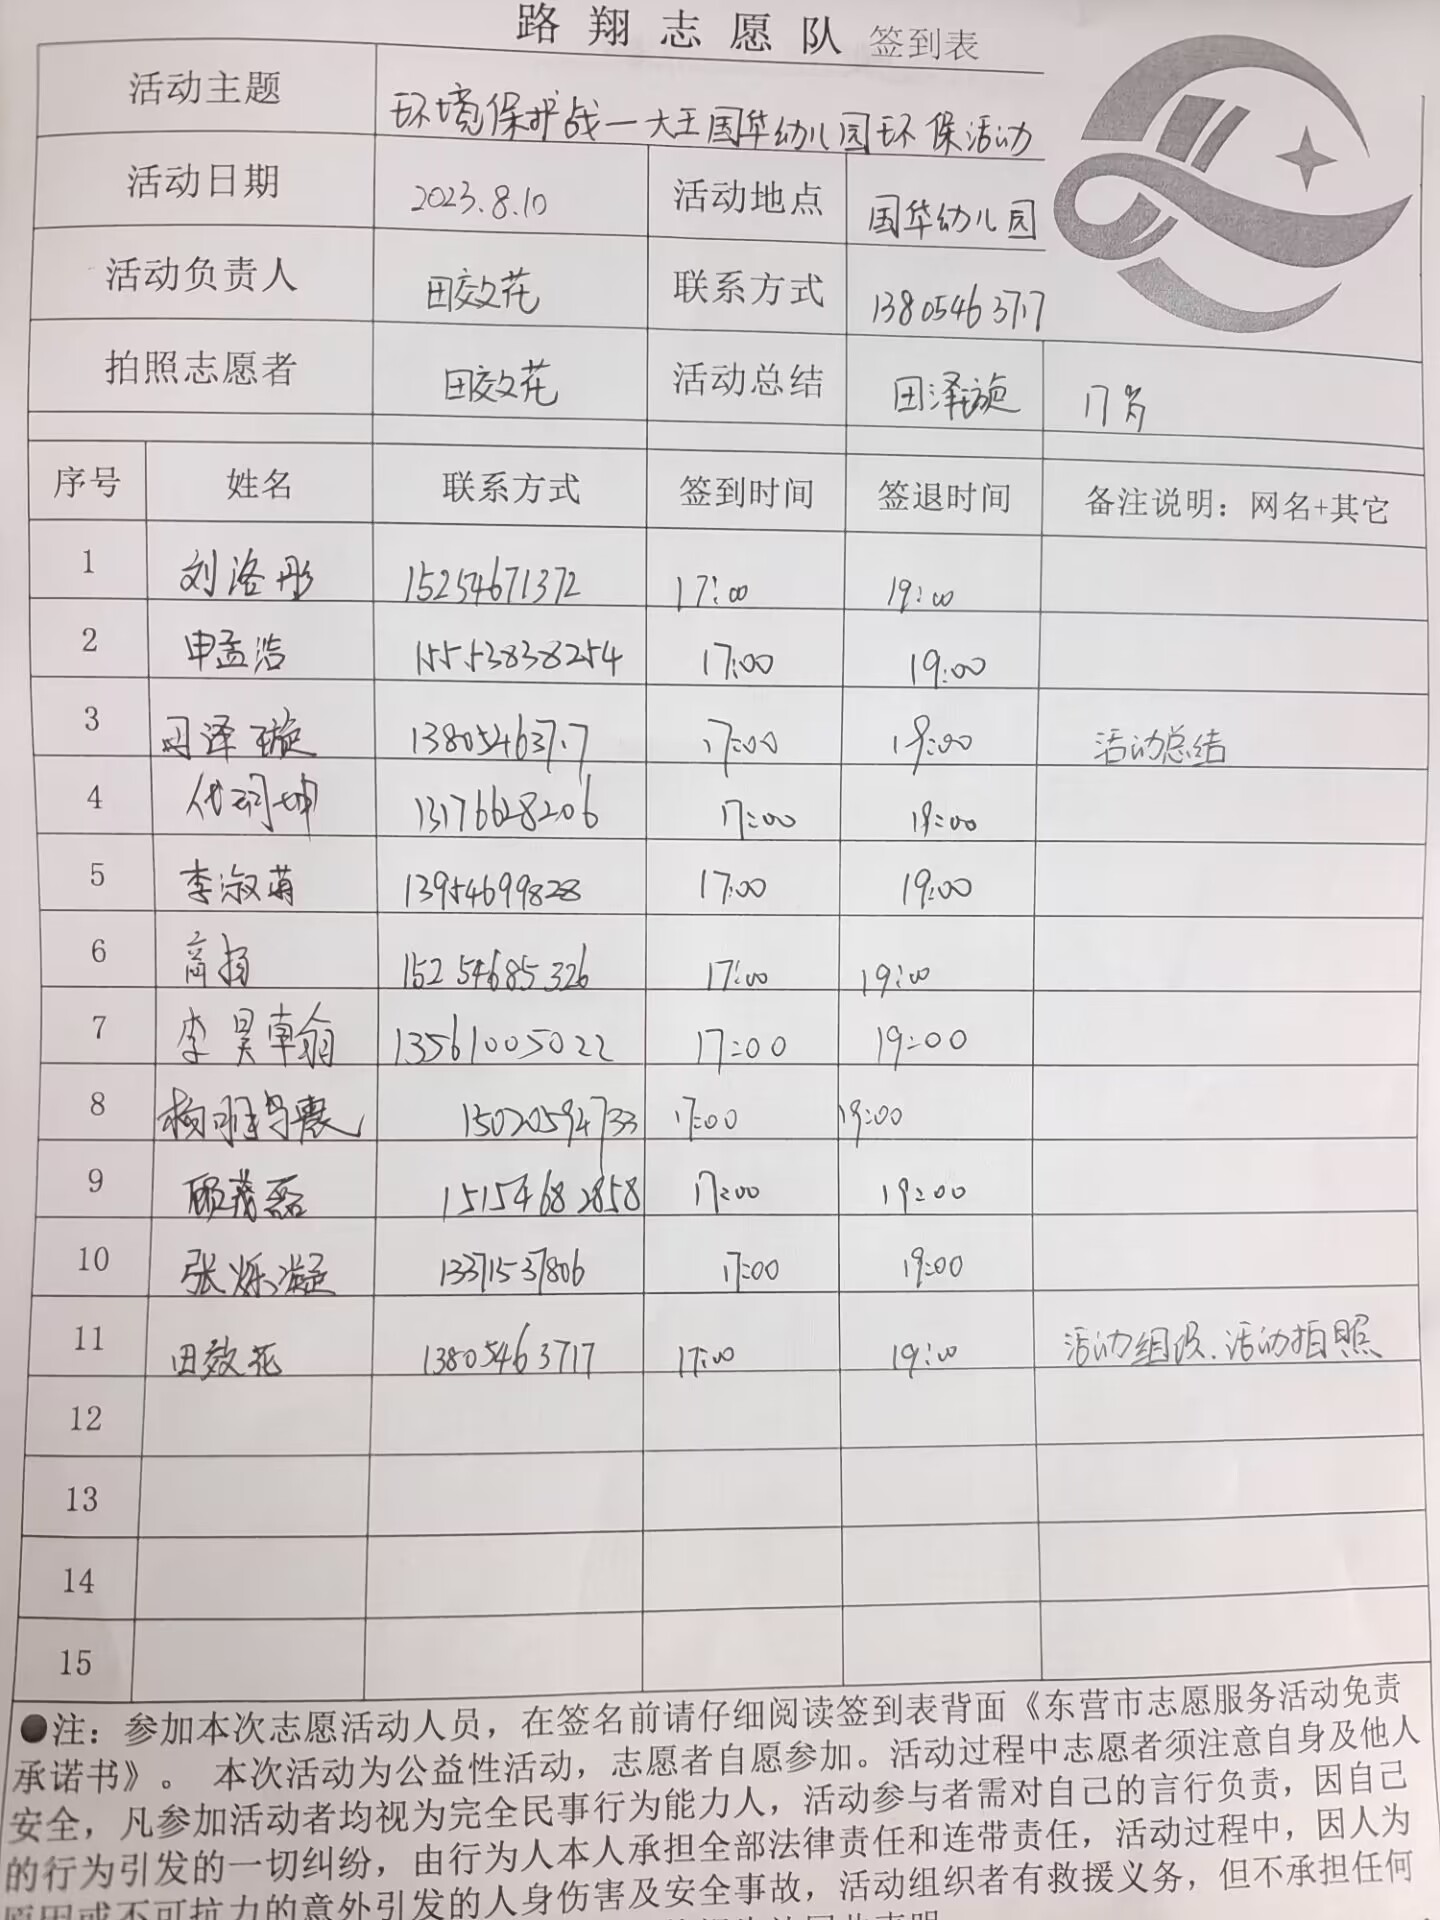 路翔志愿队 签到表
活动主题 环境保护战—大王国华幼儿园环保活动
活动日期 2023.8.10 活动地点 国华幼儿园
活动负责人 田效花 联系方式 13805463717
拍照志愿者 田效花 活动总结 田泽璇 17岁
序号 姓名 联系方式 签到时间 签退时间 备注说明：网名+其它
1 刘洛彤 15254671372 17:00 19:00
2 申孟浩 15553838254 17:00 19:00
3 田泽璇 13805463717 17:00 19:00 活动总结
4 13176628206 17:00 19:00
5 李淑萌 13954699828 17:00 19:00
6 商扬 15254685326 17:00 19:00
7 李昊翰 13561005022 17:00 19:00
8 15020594733 17:00 19:00
9 顾茂磊 15154682858 17:00 19:00
10 张烁凝 13371537806 17:00 19:00
11 田效花 13805463717 17:00 19:00 活动组织、活动拍照
12
13
14
15
●注：参加本次志愿活动人员，在签名前请仔细阅读签到表背面《东营市志愿服务活动免责
承诺书》。 本次活动为公益性活动，志愿者自愿参加。活动过程中志愿者须注意自身及他人
安全，凡参加活动者均视为完全民事行为能力人，活动参与者需对自己的言行负责，因自己
的行为引发的一切纠纷，由行为人本人承担全部法律责任和连带责任，活动过程中，因人为
原因或不可抗力的意外引发的人身伤害及安全事故，活动组织者有救援义务，但不承担任何